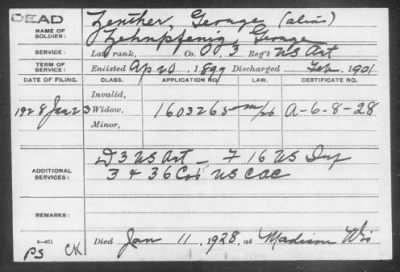 DEAD
NAME OF SOLDIER: Zenther, George (alias)
Zehnpfenig, George
SERVICE: Late rank, Co. O. 3 Reg't US Art
TERM OF SERVICE: Enlisted Ap 20, 1899 Discharged Feb. 1901
DATE OF FILING. CLASS. APPLICATION NO. LAW. CERTIFICATE NO.
Invalid,
1928 Jan 23 Widow, 1603265 A-6-8-28
Minor,
ADDITIONAL SERVICES: D 3 US Art – F 16 US Inf
3 & 36 Cos US CAC
REMARKS:
Died Jan 11, 1928, at Madison Wis
PS CK